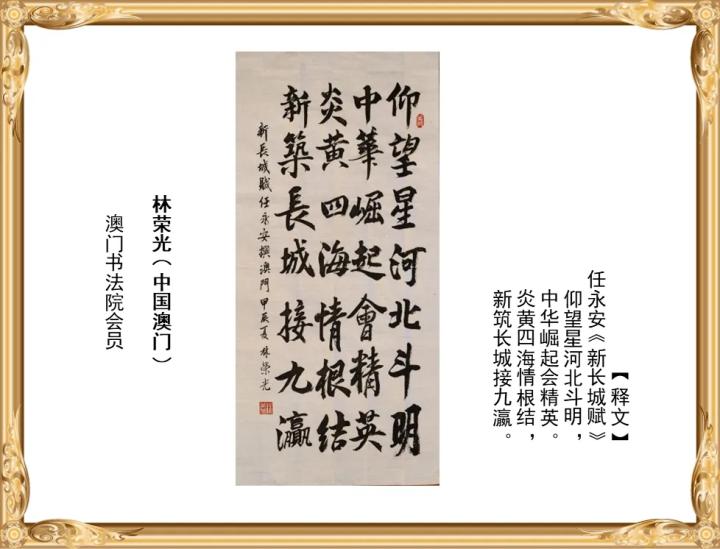 【释文】
任永安《新长城赋》
仰望星河北斗明，
中华崛起会精英。
炎黄四海情根结，
新筑长城接九瀛。
仰望星河北斗明
中華崛起會精英
炎黄四海情根结
新築長城接九瀛
新長城賦任永安撰澳門甲辰夏林榮光
林荣光（中国澳门）
澳门书法院会员